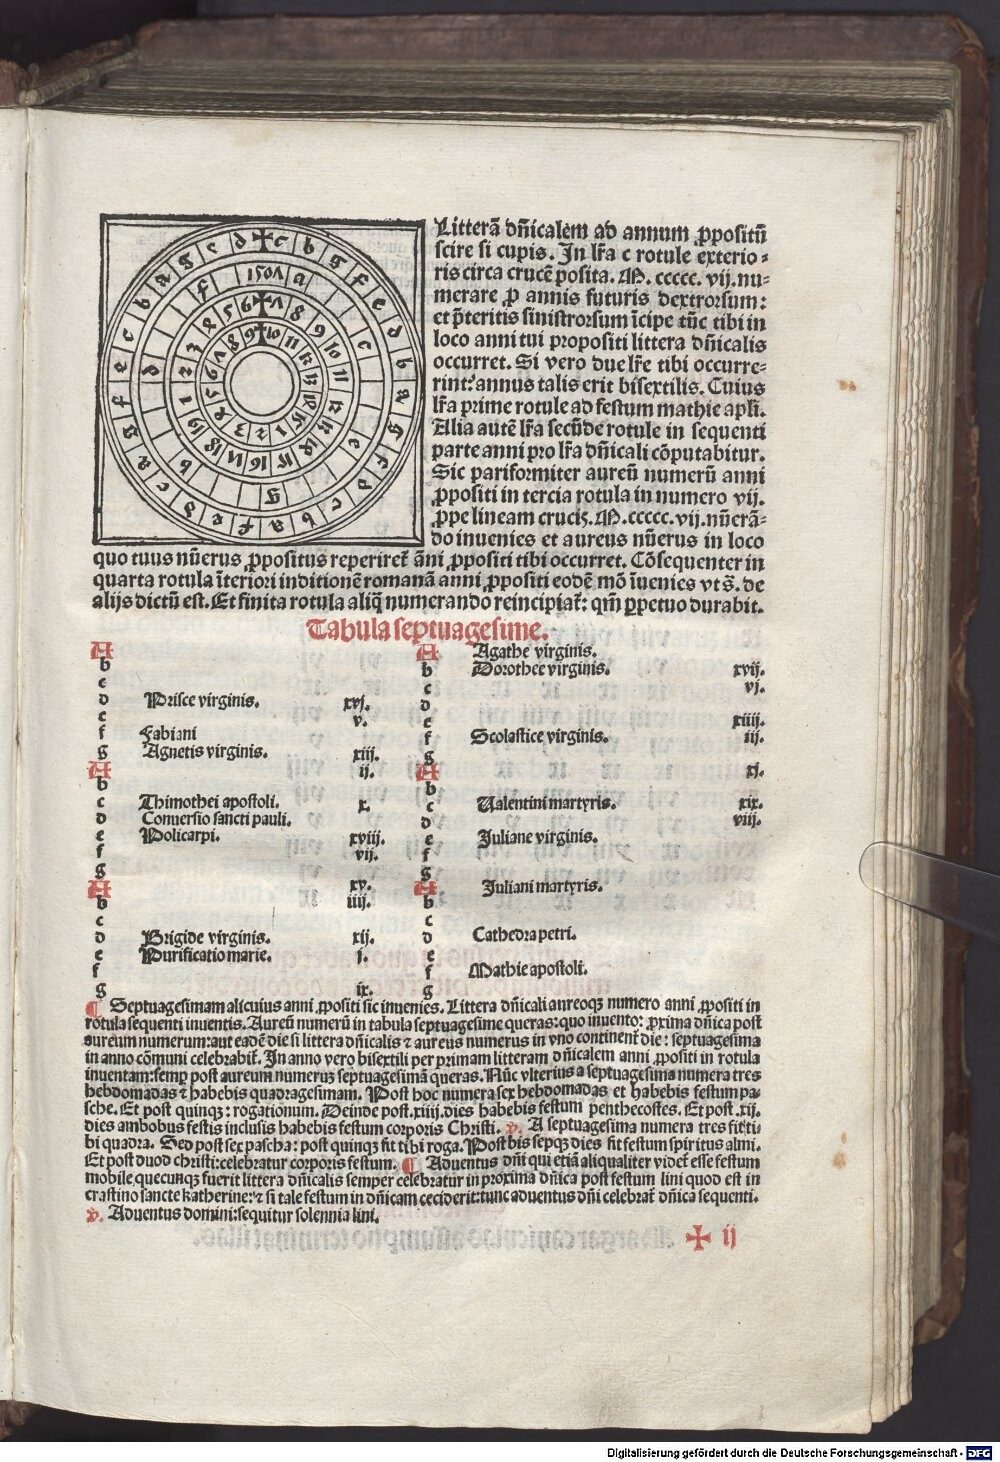 Litterā dn̄icalem ad annum ꝓpositū
scire si cupis. In lr̄a c rotule exterio⸗
ris circa crucē posita. M. ccccc. vij. nu⸗
merare ꝑ annis futuris dextrorsum:
et p̄teritis sinistrorsum īcipe tūc tibi in
loco anni tui propositi littera dn̄icalis
occurret. Si vero due lr̄e tibi occurre⸗
rint: annus talis erit bisextilis. Cuius
lr̄a prime rotule ad festum mathie apl̄i.
Alia autē lr̄a secūde rotule in sequenti
parte anni pro lr̄a dn̄icali cōputabitur.
Sic pariformiter aureū numerū anni
ꝓpositi in tercia rotula in numero vij.
ꝓpe lineam crucis. M. ccccc. vij. nūerā⸗
do inuenies et aureus nūerus in loco
quo tuus nūerus ꝓpositus reperiret̄ āni ꝓpositi tibi occurret. Cōsequenter in
quarta rotula īteriori inditionē romanā anni ꝓpositi eodē mō īuenies vt s̄. de
alijs dictū est. Et finita rotula aliq̄ numerando reincipiat̄: qm̄ ꝑpetuo durabit.
1507
Tabula septuagesime.
A
b
c
d Prisce virginis. xvj.
e v.
f Fabiani
g Agnetis virginis. xiij.
A ij.
b
c Thimothei apostoli. x.
d Conuersio sancti pauli.
e Policarpi. xviij.
f vij.
g
A xv.
b iiij.
c
d Brigide virginis. xij.
e Purificatio marie. j.
f
g ix.
A Agathe virginis.
b Dorothee virginis. xvij.
c vj.
d
e xiiij.
f Scolastice virginis. iij.
g
A xj.
b
c Ualentini martyris. xix.
d viij.
e Juliane virginis.
f
g
A Juliani martyris.
b
c
d Cathedra petri.
e
f Mathie apostoli.
g
¶ Septuagesimam alicuius anni ꝓpositi sic inuenies. Littera dn̄icali aureoqꝫ numero anni ꝓpositi in
rotula sequenti inuentis. Aureū numerū in tabula septuagesime queras: quo inuento: ꝓxima dn̄ica post
aureum numerum: aut eadē die si littera dn̄icalis ⁊ aureus numerus in vno continent̄ die: septuagesima
in anno cōmuni celebrabit̄. In anno vero bisextili per primam litteram dn̄icalem anni ꝓpositi in rotula
inuentam: semꝑ post aureum numerum septuagesimā queras. Nūc vlterius a septuagesima numera tres
hebdomadas ⁊ habebis quadragesimam. Post hoc numera sex hebdomadas et habebis festum pa⸗
sche. Et post quinqꝫ: rogationum. Deinde post. xiiij. dies habebis festum penthecostes. Et post .xij.
dies ambobus festis inclusis habebis festum corporis Christi. ℣. A septuagesima numera tres fit ti⸗
bi quadra. Sed post sex pascha: post quinqꝫ fit tibi roga. Post bis sepqꝫ dies fit festum spiritus almi.
Et post duod christi: celebratur corporis festum. ¶ Aduentus dn̄i qui etiā aliqualiter videt̄ esse festum
mobile, quecunqꝫ fuerit littera dn̄icalis semper celebratur in proxima dn̄ica post festum lini quod est in
crastino sancte katherine: ⁊ si tale festum in dn̄icam ceciderit: tunc aduentus dn̄i celebrat̄ dn̄ica sequenti.
℣. Aduentus domini: sequitur solennia lini.
✠ ij
Digitalisierung gefördert durch die Deutsche Forschungsgemeinschaft - DFG